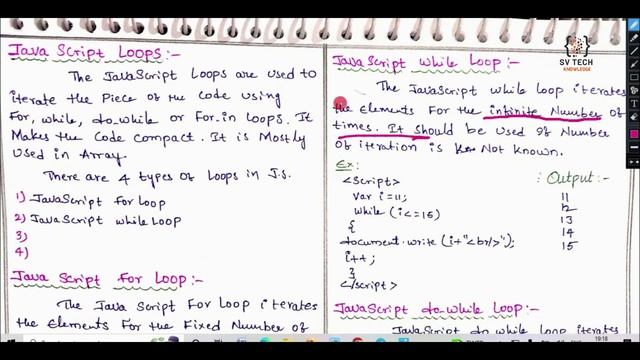 Java Script Loops:-
The JavaScript Loops are used to
iterate the Piece of the code using
For, while, do-while or For-in loops. It
Makes the Code Compact. It is Mostly
Used in Array
There are 4 types of Loops in J.S.
1) JavaScript for Loop
2) JavaScript while Loop
3)
4)
Java Script for Loop:-
The Java Script For Loop iterates
the Elements For the Fixed Number of
SV TECH
KNOWLEDGE
JavaScript while Loop:-
The JavaScript while loop iterates
the Elements For the infinite Number of
times. It should be used of Number
of iteration is Not known.
Ex:
<Script>
var i=11;
while (i<=15)
{
document.write (i+"<br/>");
i++;
}
</script>
Output:-
11
12
13
14
15
JavaScript do-while Loop:-
JavaScript do while loop iterates
19:18